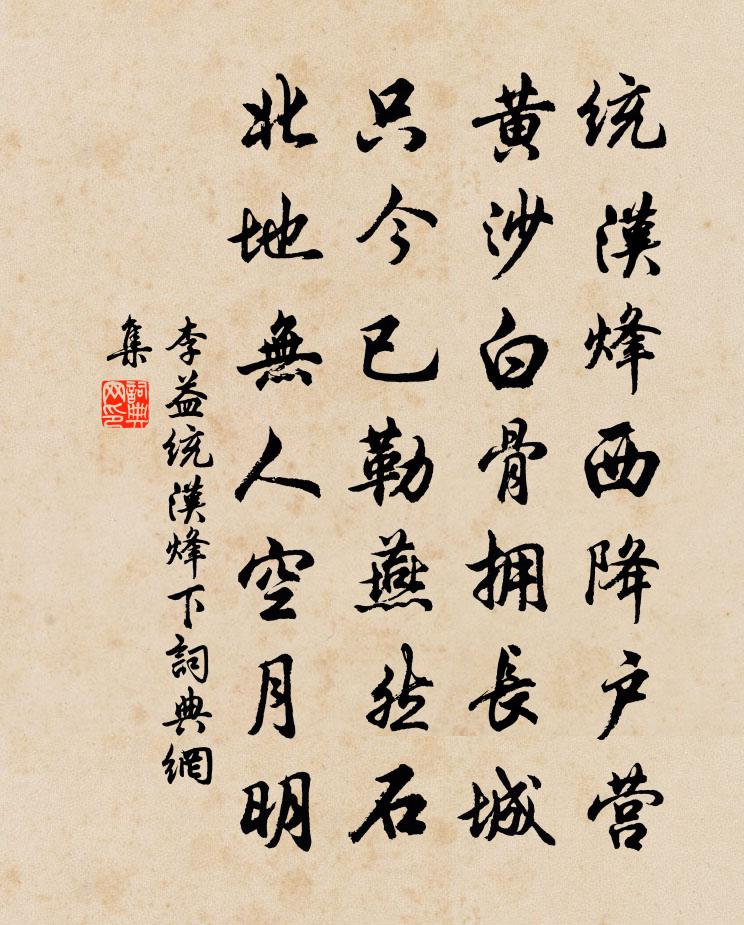 统漢烽西降户营
黄沙白骨拥長城
只今已勒燕然石
北地無人空月明
李益统漢烽下詞典網
集
詞典
网印